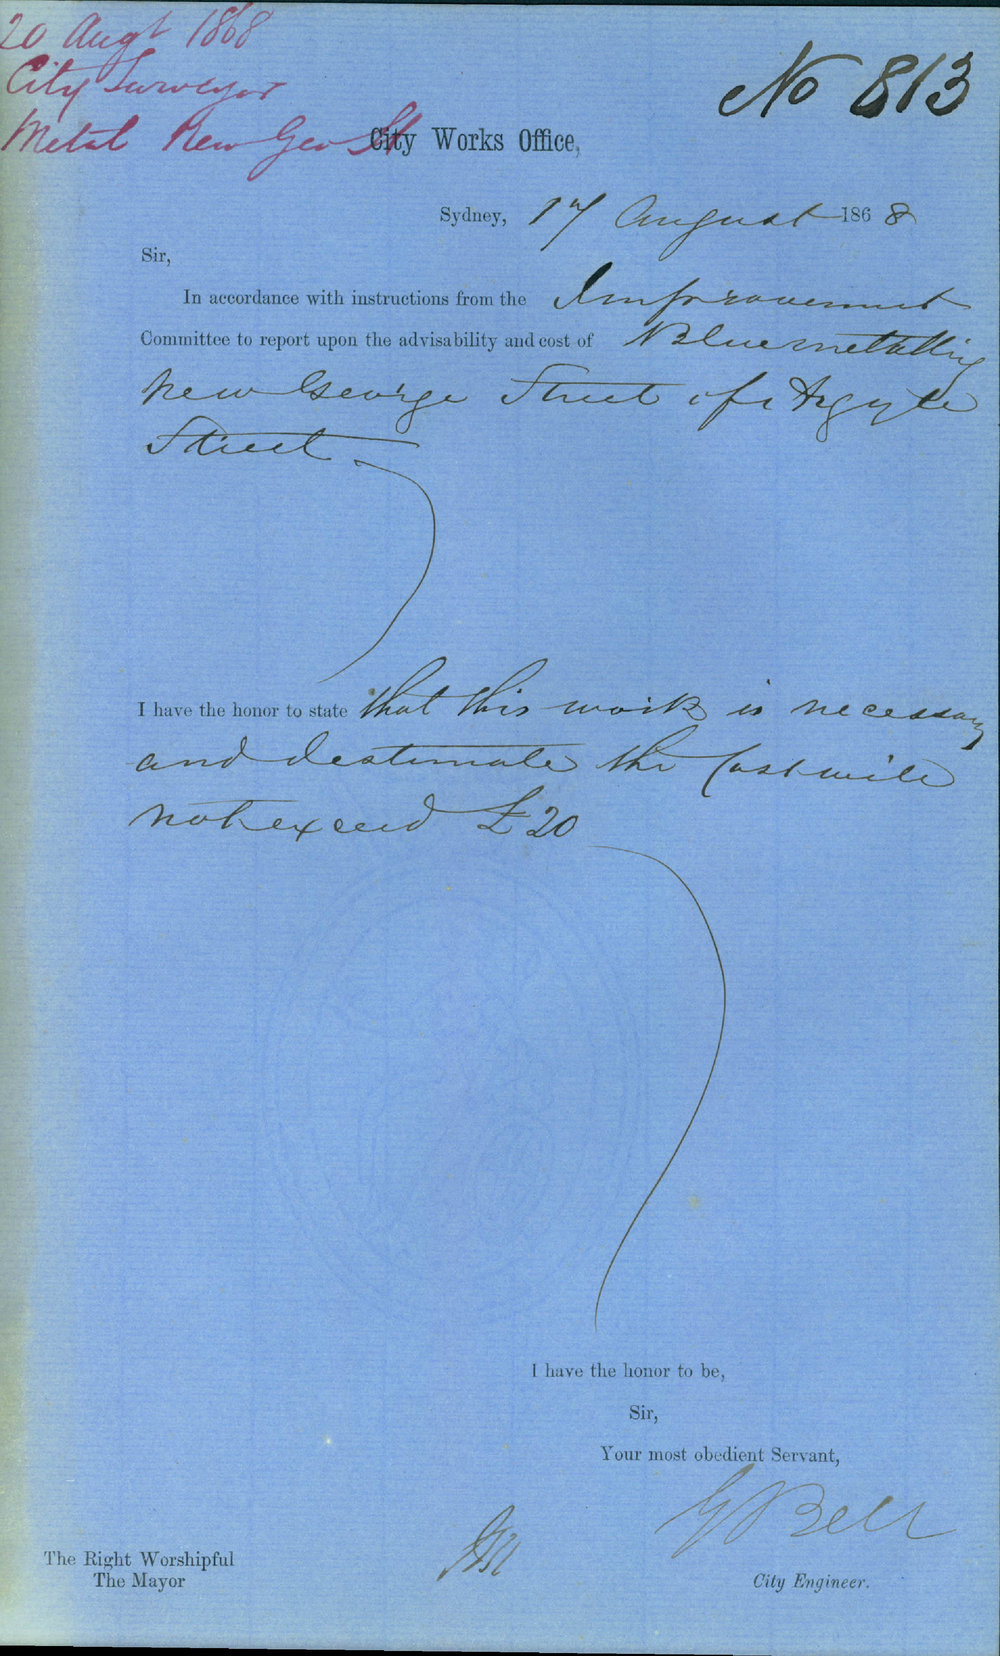 20 Augt 1868
City Surveyor
Metal New Geo St
No 813
City Works Office,
Sydney, 17 August 1868
Sir,
In accordance with instructions from the Improvement
Committee to report upon the advisability and cost of Bluemetalling
New George Street off Argyle
Street
I have the honor to state that this work is necessary
and I estimate the Cost will
not exceed £20
I have the honor to be,
Sir,
Your most obedient Servant,
G Bell
The Right Worshipful
The Mayor
City Engineer.